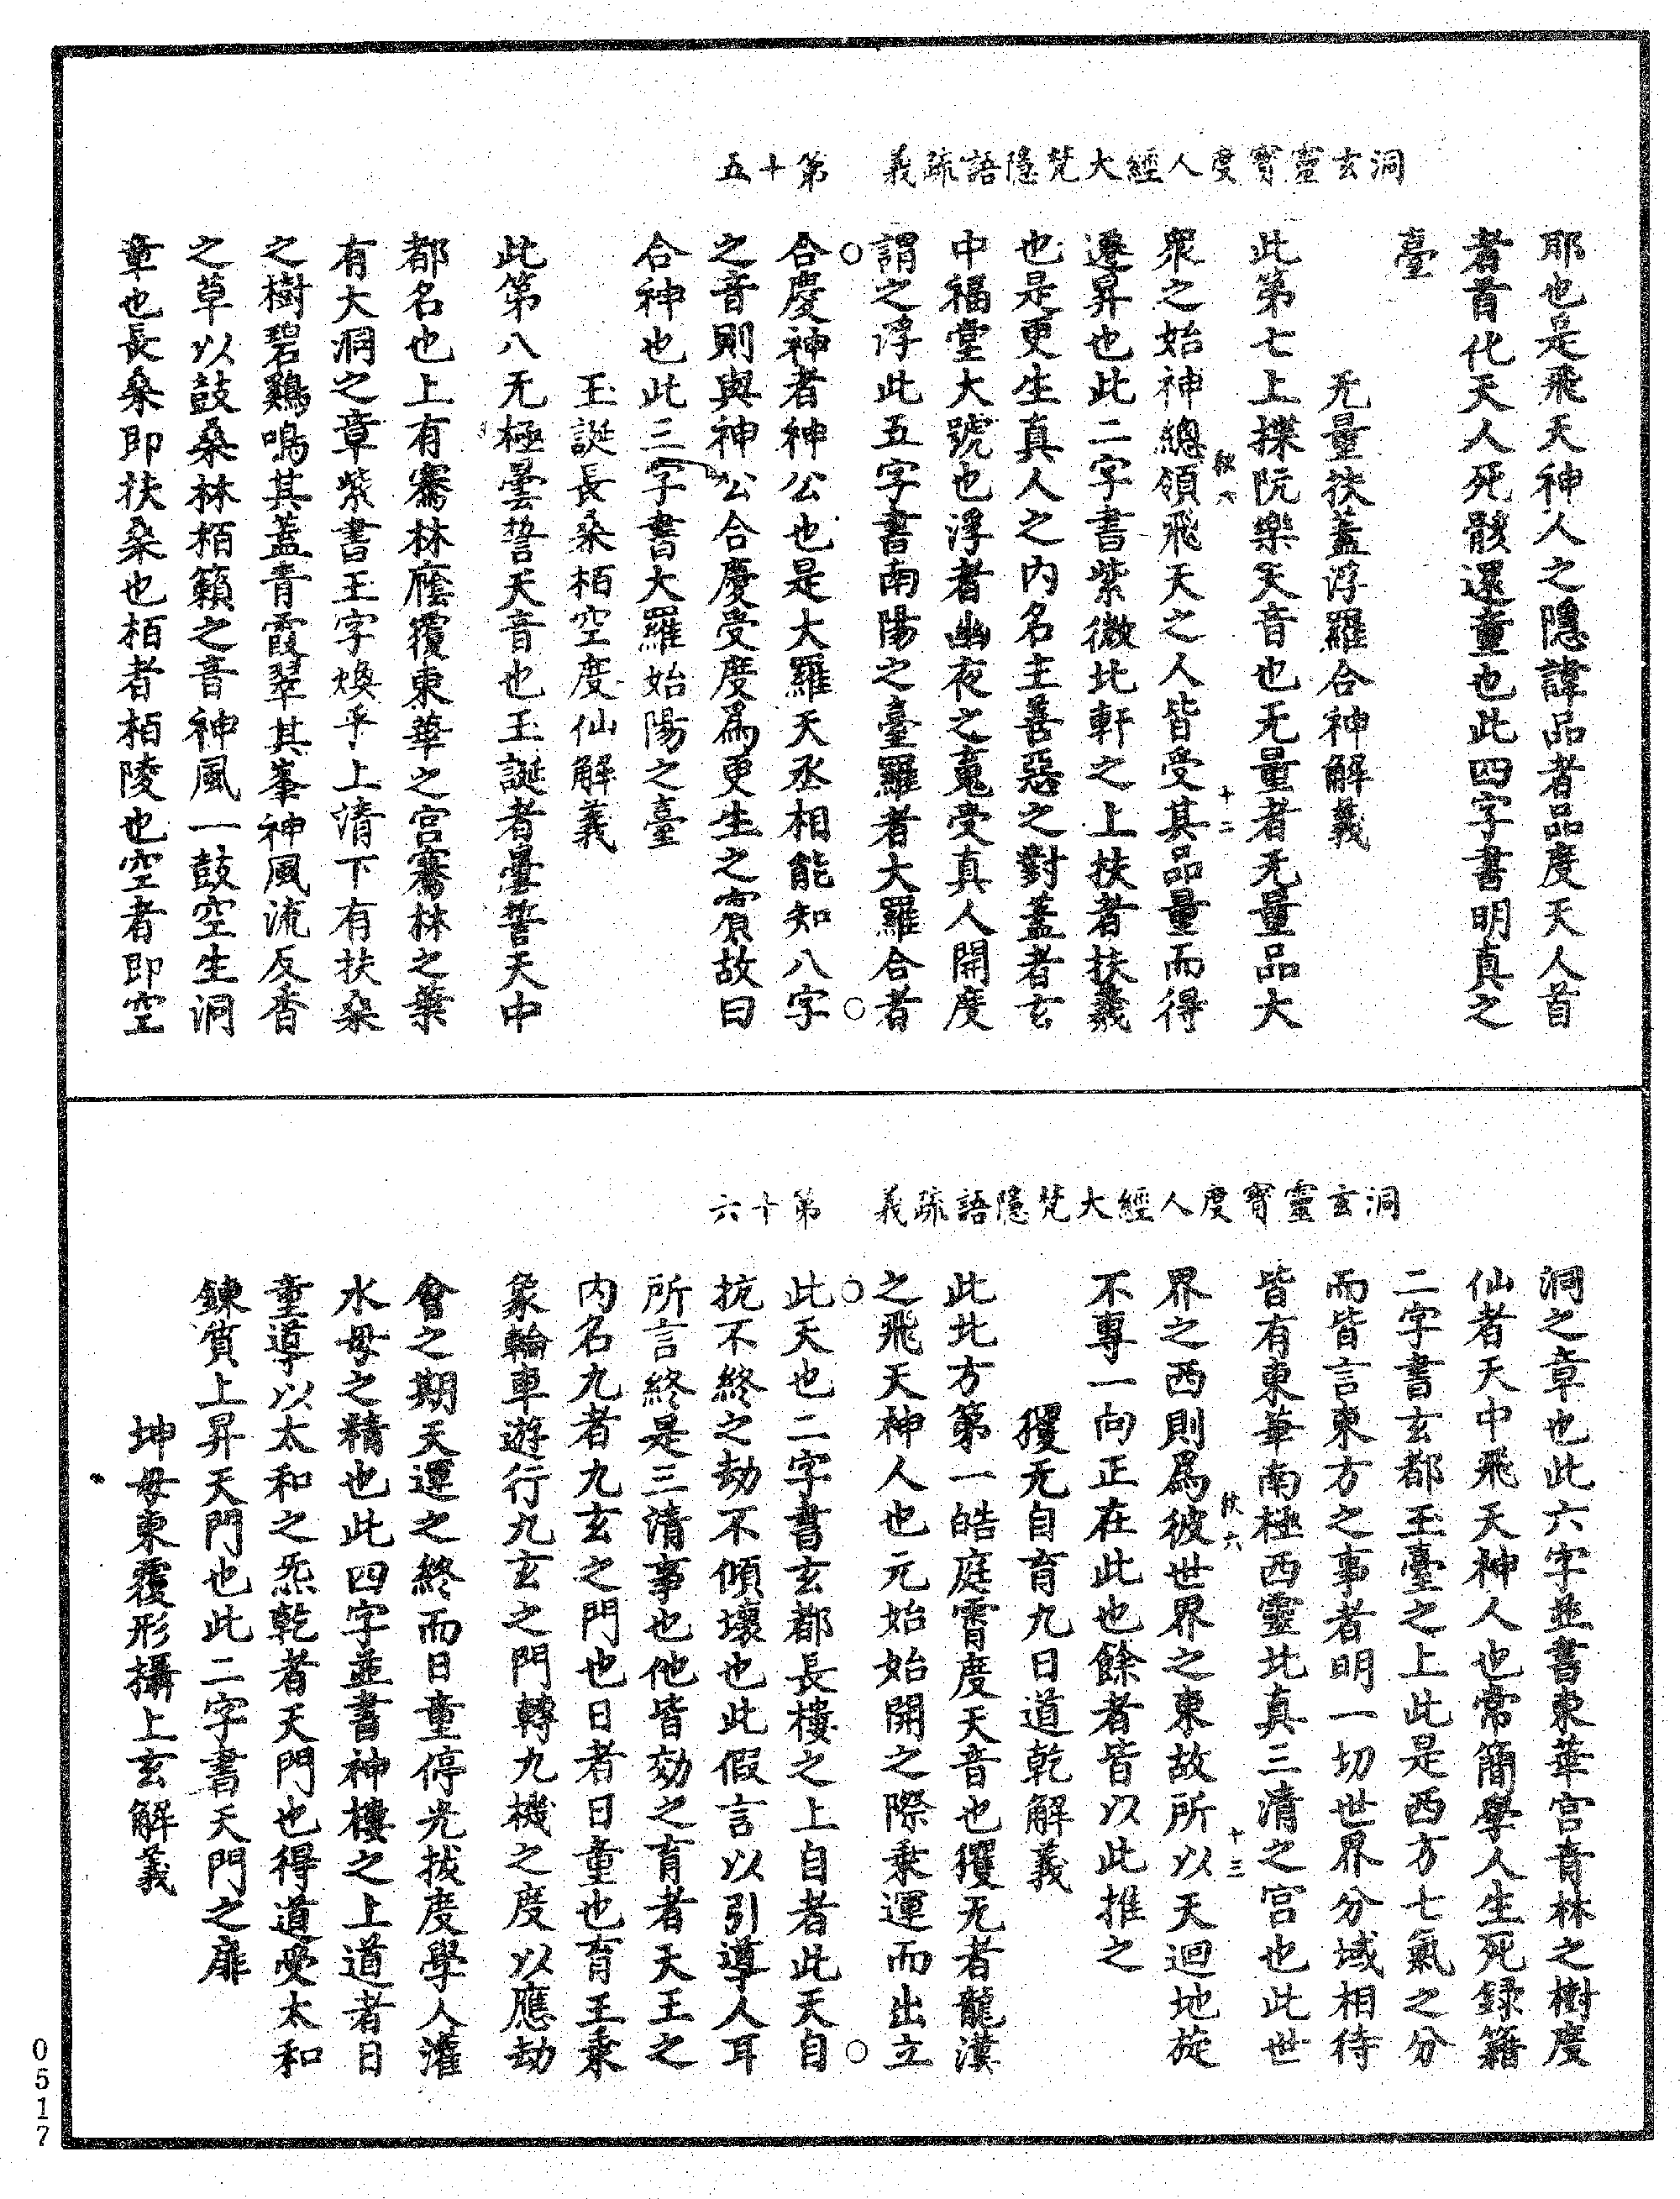 洞玄靈寶度人經大梵隱語疏義　第十五
耶也是飛天神人之隱諱品者品度天人首
者首化天人死骸還童也此四字書明真之
臺
无量扶蓋浮羅合神解義
此第七上揲阮樂天音也无量者无量品大
衆之始神總領飛天之人皆受其品量而得
遷昇也此二字書紫微北軒之上扶者扶義
也是更生真人之內名主善惡之對蓋者玄
中福堂大號也浮者幽夜之䰟受真人開度
謂之浮此五字書南陽之臺羅者大羅合者
合慶神者神公也是大羅天丞相能知八字
之音則與神公合慶受度爲更生之賔故曰
合神也此三字書大羅始陽之臺
玉誕長桑栢空度仙解義
此第八无極曇誓天音也玉誕者曇誓天中
都名也上有騫林䕃覆東華之宮騫林之葉
有大洞之章紫書玉字煥乎上清下有扶桑
之樹碧鷄鳴其蓋青霞翠其峯神風流反香
之草以鼓桑林栢籟之音神風一鼓空生洞
章也長桑即扶桑也栢者栢陵也空者即空
扶六
十二
洞玄靈寶度人經大梵隱語疏義　第十六
洞之章也此六字並書東華宮青林之樹度
仙者天中飛天神人也常簡學人生死録籍
二字書玄都玉臺之上此是西方七氣之分
而皆言東方之事者明一切世界分域相待
皆有東華南極西靈北真三清之宮也此世
界之西則爲彼世界之東故所以天迴地旋
不專一向正在此也餘者皆以此推之
玃无自育九日道乾解義
此北方第一皓庭霄度天音也玃无者龍漢
之飛天神人也元始始開之際乘運而出立
此天也二字書玄都長樓之上自者此天自
抗不終之劫不傾壞也此假言以引導人耳
所言終是三清事也他皆効之育者天王之
內名九者九玄之門也日者日童也育王乘
象輪車遊行九玄之門轉九機之度以應劫
會之期天運之終而日童停光拔度學人灌
水母之精也此四字並書神樓之上道者日
童導以太和之炁乾者天門也得道受太和
鍊質上昇天門也此二字書天門之扉
坤母東覆形攝上玄解義
扶六
十三
0517